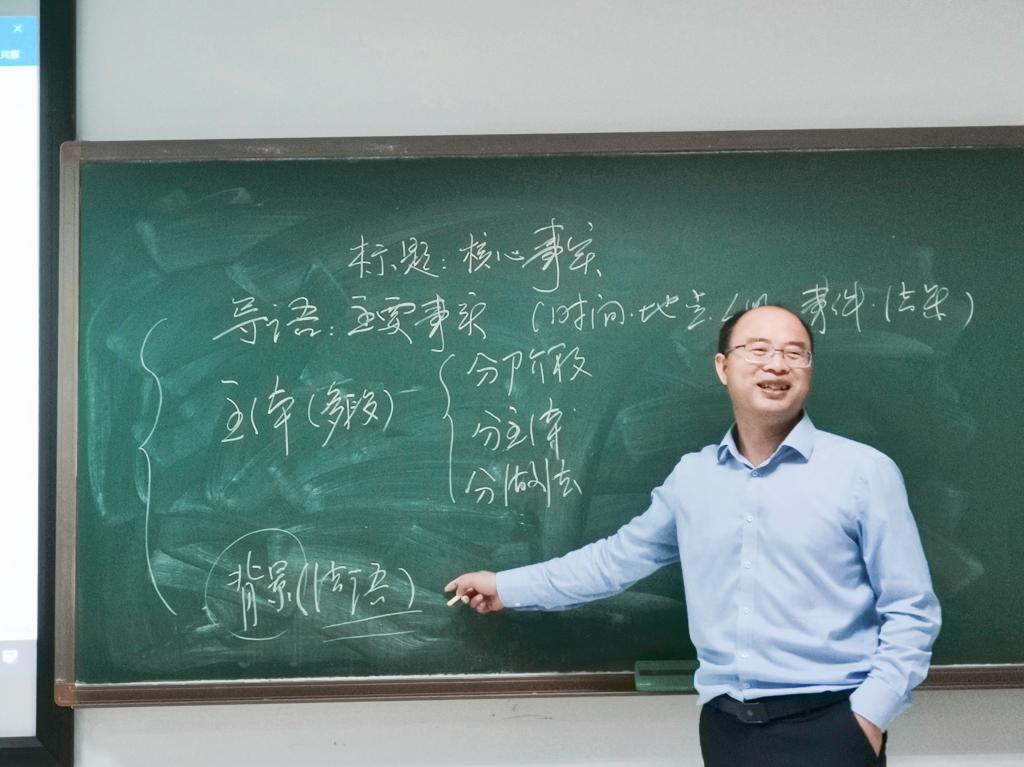 标题：核心事实
导语：主要事实 （时间·地点·人 事件·结果）
主体（多段）
分阶段
分主体
分做法
背景（结语）